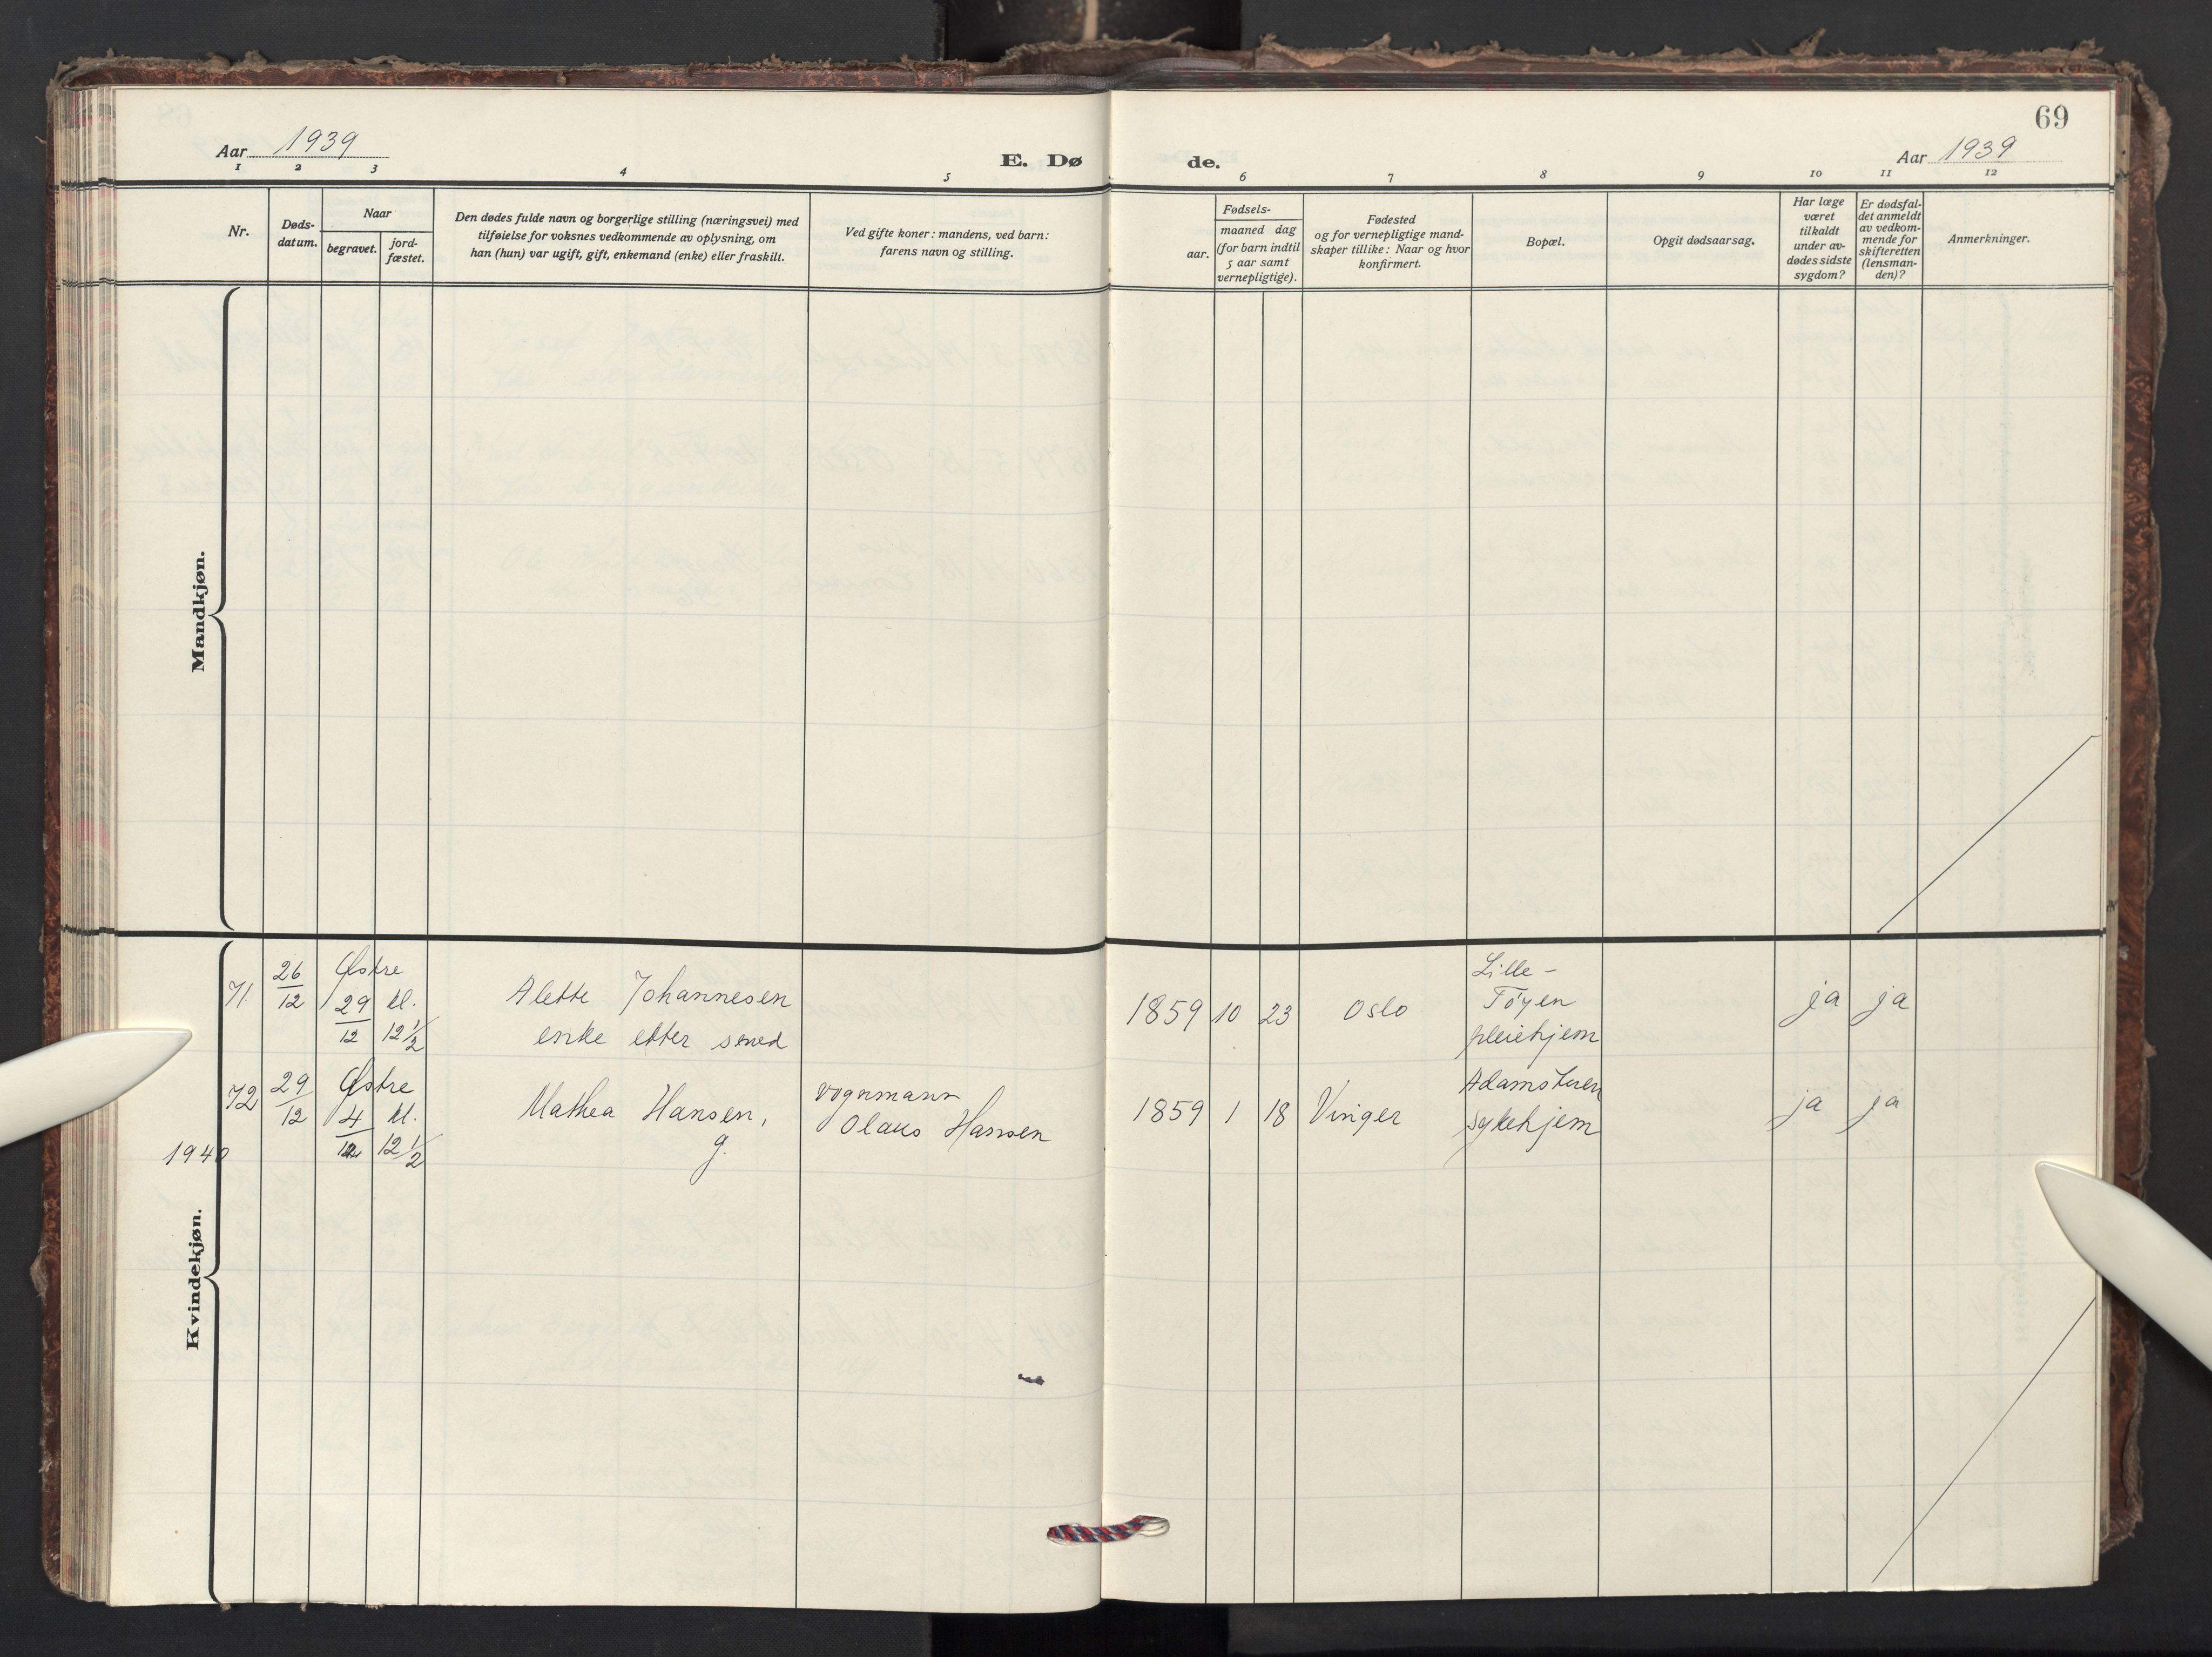 69
Aar 1939
E. Dø de.
Aar 1939
1 2 3 4 5 6 7 8 9 10 11 12
Nr.
Døds-
datum.
Naar
begravet.
jord-
fæstet.
Den dødes fulde navn og borgerlige stilling (næringsvei) med
tilføielse for voksnes vedkommende av oplysning, om
han (hun) var ugift, gift, enkemand (enke) eller fraskilt.
Ved gifte koner: mandens, ved barn:
farens navn og stilling.
Fødsels-
aar.
maaned dag
(for barn indtil
5 aar samt
vernepligtige).
Fødested
og for vernepligtige mand-
skaper tillike: Naar og hvor
konfirmert.
Bopæl.
Opgit dødsaarsag.
Har læge
været
tilkaldt
under av-
dødes sidste
sygdom?
Er dødsfal-
det anmeldt
av vedkom-
mende for
skifteretten
(lensman-
den)?
Anmerkninger.
Mandkjøn.
Kvindekjøn.
71 26/12 Østre 29/12 kl. 12 1/2
Alette Johannesen
enke etter smed
1859 10 23 Oslo
Lille-
Tøyen
pleiehjem
ja ja
72 29/12 Østre 4/ kl. 12 1/2
1940
Mathea Hansen,
g.
vognmann
Olaus Hansen
1859 1 18 Vinger
Adamstuen
sykehjem
ja ja